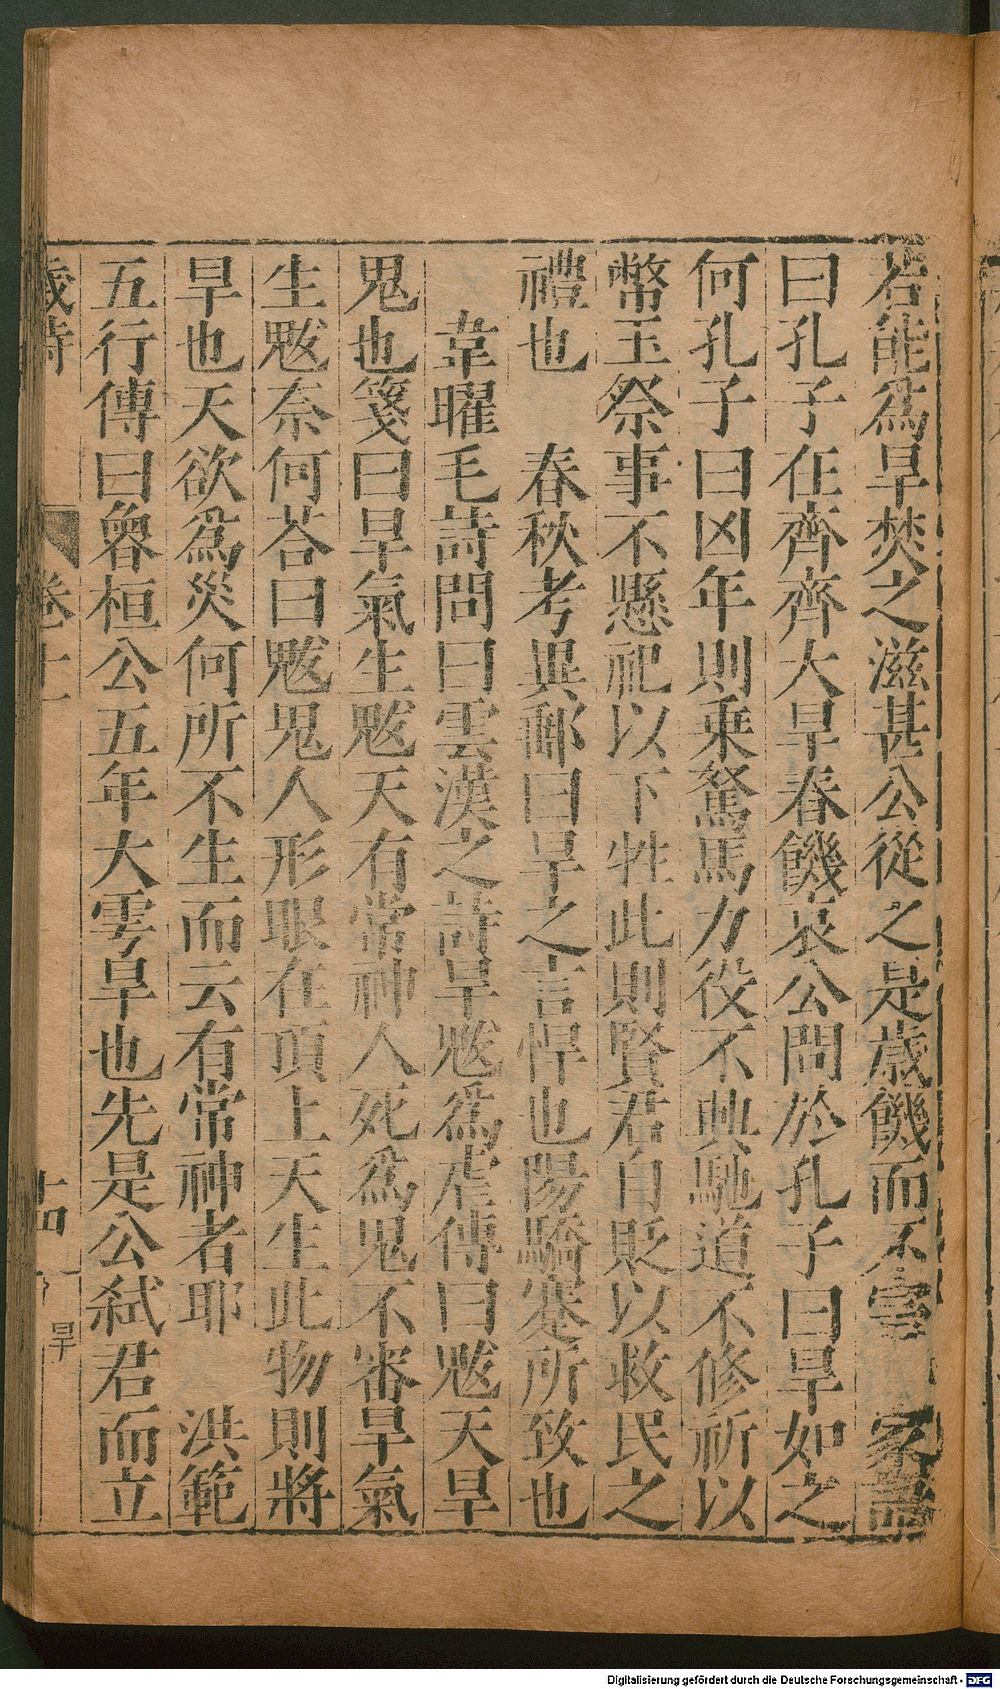 若能爲旱焚之滋甚公從之是歲饑而不害 家語
曰孔子在齊齊大旱春饑哀公問於孔子曰旱如之
何孔子曰凶年則乗駑馬力役不興馳道不修祈以
幣玉祭事不懸祀以下牲此則賢君自貶以救民之
禮也 春秋考異郵曰旱之言悍也陽驕蹇所致也
韋曜毛詩問曰雲漢之詩旱魃爲虐傳曰魃天旱
鬼也箋曰旱氣生魃天有常神人死爲鬼不審旱氣
生魃奈何荅曰魃鬼人形眼在頂上天生此物則將
旱也天欲爲災何所不生而云有常神者耶 洪範
五行傳曰魯桓公五年大雩旱也先是公弒君而立
歲時 卷十一 十四 旱
Digitalisierung gefördert durch die Deutsche Forschungsgemeinschaft - DFG